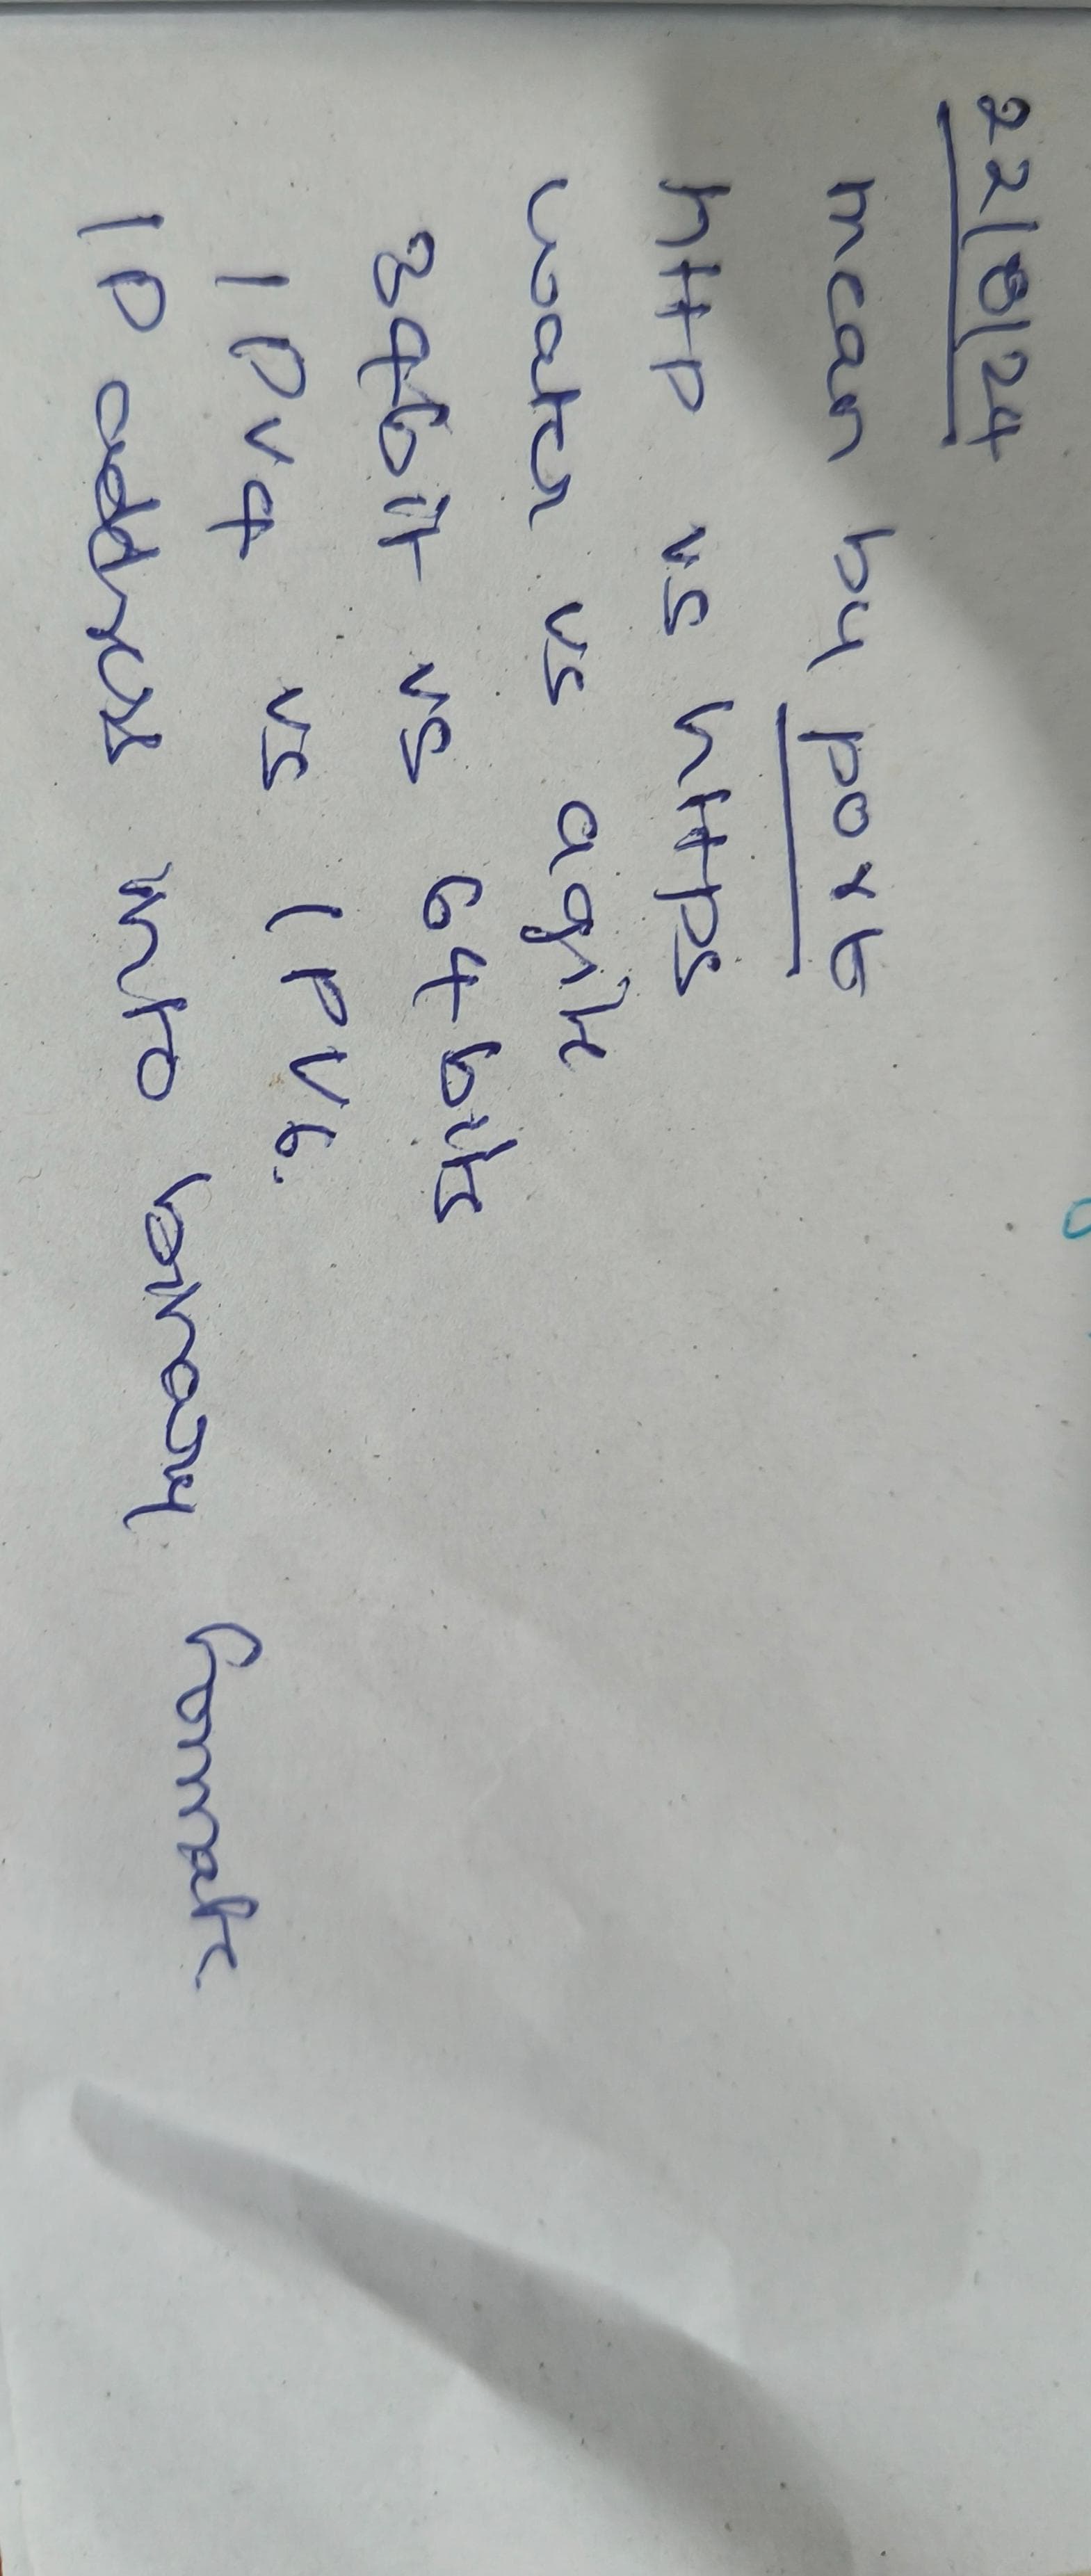 22/8/24
mean by port
http vs https
water vs agile
34bit vs 64bits
IPv4 vs IPv6.
IP address into binary